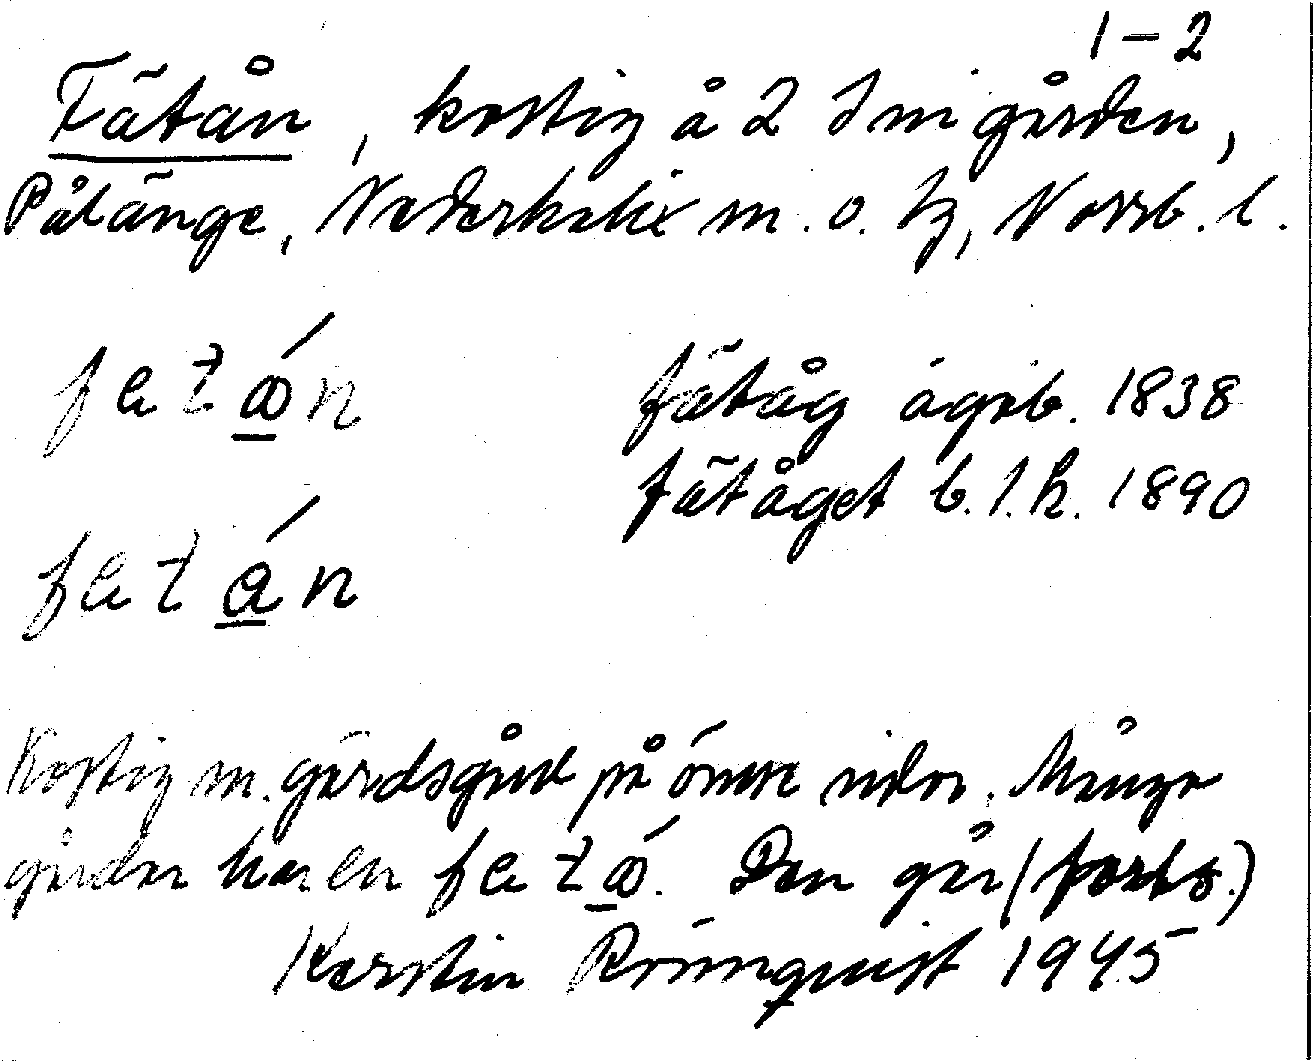 1-2
Fätån, kostig å 2 Smigården,
Pålänge, Nederkalix sn. o. hg, Norrb. l.
fätåg ägob. 1838
fätåget b.l.k. 1890
Kostig m. gärdsgård på ömse sidor. Många
gårdar har en. Den går (forts.)
Kerstin Rönnquist 1945